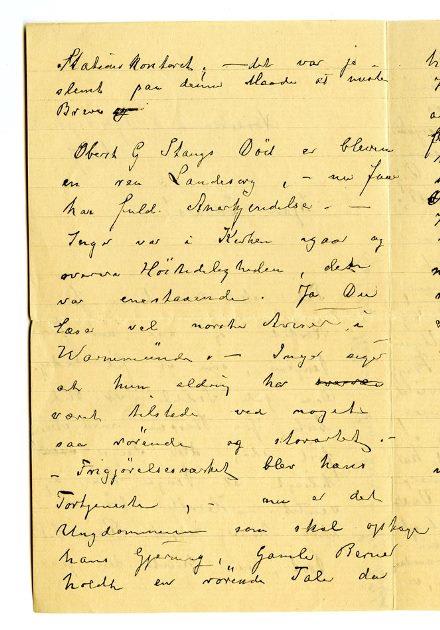 Stationskontoret, – det var jo
slemt paa denne Maade at miste
Breve
Oberst G Stangs Död er bleven
en ren Landesorg, – nu faar
han fuld Anerkjendelse. –
Inger var i Kirken igaar og
overvar Höitideligheden, den
var enestaaende. Ja Du
læser vel norske Aviser i
Warnemünde. – Inger siger
at hun aldrig har
været tilstede ved noget
saa rörende og storartet. –
– Frigjörelsesværket blev hans
Fortjeneste, nu er det
Ungdommen som skal optage
hans Gjerning, Gamle Berner
holdt en rörende Tale da